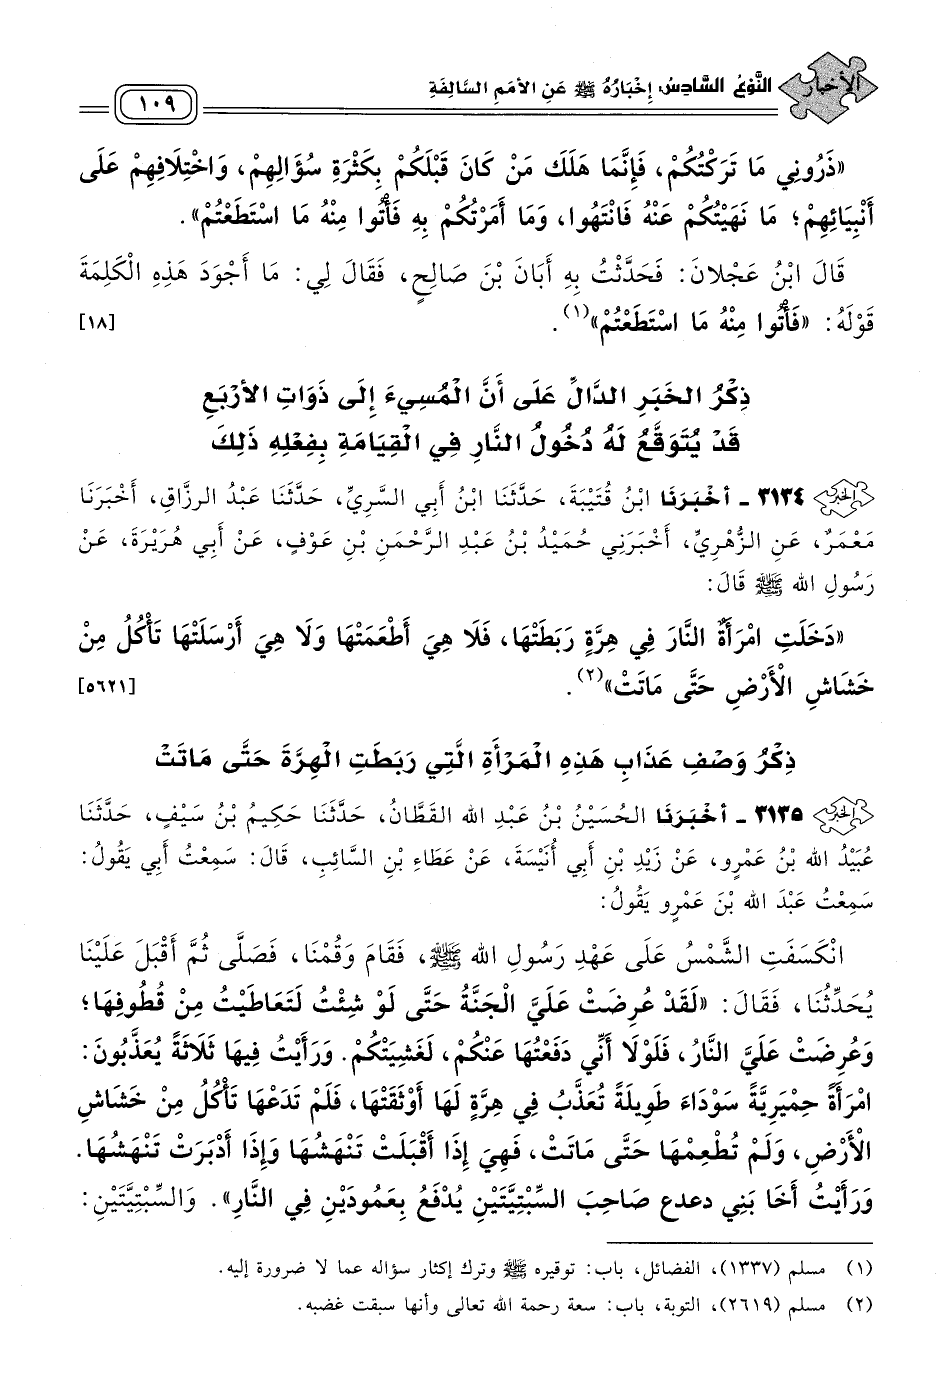 الأخبار النَّوْعُ السَّادِسُ إِخْبَارُهُ ﷺ عَنِ الأُمَمِ السَّالِفَةِ ١٠٩
«ذَرُونِي مَا تَرَكْتُكُمْ، فَإِنَّمَا هَلَكَ مَنْ كَانَ قَبْلَكُمْ بِكَثْرَةِ سُؤَالِهِمْ، وَاخْتِلَافِهِمْ عَلَى
أَنْبِيَائِهِمْ؛ مَا نَهَيْتُكُمْ عَنْهُ فَانْتَهُوا، وَمَا أَمَرْتُكُمْ بِهِ فَأْتُوا مِنْهُ مَا اسْتَطَعْتُمْ».
قَالَ ابْنُ عَجْلَانَ: فَحَدَّثْتُ بِهِ أَبَانَ بْنَ صَالِحٍ، فَقَالَ لِي: مَا أَجْوَدَ هَذِهِ الْكَلِمَةَ
قَوْلَهُ: «فَأْتُوا مِنْهُ مَا اسْتَطَعْتُمْ»(١). [١٨]
ذِكْرُ الخَبَرِ الدَّالِّ عَلَى أَنَّ الْمُسِيءَ إِلَى ذَوَاتِ الأَرْبَعِ
قَدْ يُتَوَقَّعُ لَهُ دُخُولُ النَّارِ فِي الْقِيَامَةِ بِفِعْلِهِ ذَلِكَ
الخبر ٣١٣٤ - أَخْبَرَنَا ابْنُ قُتَيْبَةَ، حَدَّثَنَا ابْنُ أَبِي السَّرِيِّ، حَدَّثَنَا عَبْدُ الرزَّاقِ، أَخْبَرَنَا
مَعْمَرٌ، عَنِ الزُّهْرِيِّ، أَخْبَرَنِي حُمَيْدُ بْنُ عَبْدِ الرَّحْمَنِ بْنِ عَوْفٍ، عَنْ أَبِي هُرَيْرَةَ، عَنْ
رَسُولِ الله ﷺ قَالَ:
«دَخَلَتِ امْرَأَةٌ النَّارَ فِي هِرَّةٍ رَبَطَتْهَا، فَلَا هِيَ أَطْعَمَتْهَا وَلَا هِيَ أَرْسَلَتْهَا تَأْكُلُ مِنْ
خَشَاشِ الْأَرْضِ حَتَّى مَاتَتْ»(٢). [٥٦٢١]
ذِكْرُ وَصْفِ عَذَابِ هَذِهِ الْمَرْأَةِ الَّتِي رَبَطَتِ الْهِرَّةَ حَتَّى مَاتَتْ
الخبر ٣١٣٥ - أَخْبَرَنَا الحُسَيْنُ بْنُ عَبْدِ الله القَطَّانُ، حَدَّثَنَا حَكِيمُ بْنُ سَيْفٍ، حَدَّثَنَا
عُبَيْدُ الله بْنُ عَمْرٍو، عَنْ زَيْدِ بْنِ أَبِي أُنَيْسَةَ، عَنْ عَطَاءِ بْنِ السَّائِبِ، قَالَ: سَمِعْتُ أَبِي يَقُولُ:
سَمِعْتُ عَبْدَ الله بْنَ عَمْرٍو يَقُولُ:
انْكَسَفَتِ الشَّمْسُ عَلَى عَهْدِ رَسُولِ الله ﷺ، فَقَامَ وَقُمْنَا، فَصَلَّى ثُمَّ أَقْبَلَ عَلَيْنَا
يُحَدِّثُنَا، فَقَالَ: «لَقَدْ عُرِضَتْ عَلَيَّ الْجَنَّةُ حَتَّى لَوْ شِئْتُ لَتَعَاطَيْتُ مِنْ قُطُوفِهَا؛
وَعُرِضَتْ عَلَيَّ النَّارُ، فَلَوْلَا أَنِّي دَفَعْتُهَا عَنْكُمْ، لَغَشِيَتْكُمْ. وَرَأَيْتُ فِيهَا ثَلَاثَةً يُعَذَّبُونَ:
امْرَأَةً حِمْيَرِيَّةً سَوْدَاءَ طَوِيلَةً تُعَذَّبُ فِي هِرَّةٍ لَهَا أَوْثَقَتْهَا، فَلَمْ تَدَعْهَا تَأْكُلُ مِنْ خَشَاشِ
الْأَرْضِ، وَلَمْ تُطْعِمْهَا حَتَّى مَاتَتْ، فَهِيَ إِذَا أَقْبَلَتْ تَنْهَشُهَا وَإِذَا أَدْبَرَتْ تَنْهَشُهَا.
وَرَأَيْتُ أَخَا بَنِي دعدع صَاحِبَ السِّبْتِيَّتَيْنِ يُدْفَعُ بِعَمُودَيْنِ فِي النَّارِ». وَالسِّبْتِيَّتَيْنِ:
(١) مسلم (١٣٣٧)، الفضائل، باب: توقيره ﷺ وترك إكثار سؤاله عما لا ضرورة إليه.
(٢) مسلم (٢٦١٩)، التوبة، باب: سعة رحمة الله تعالى وأنها سبقت غضبه.